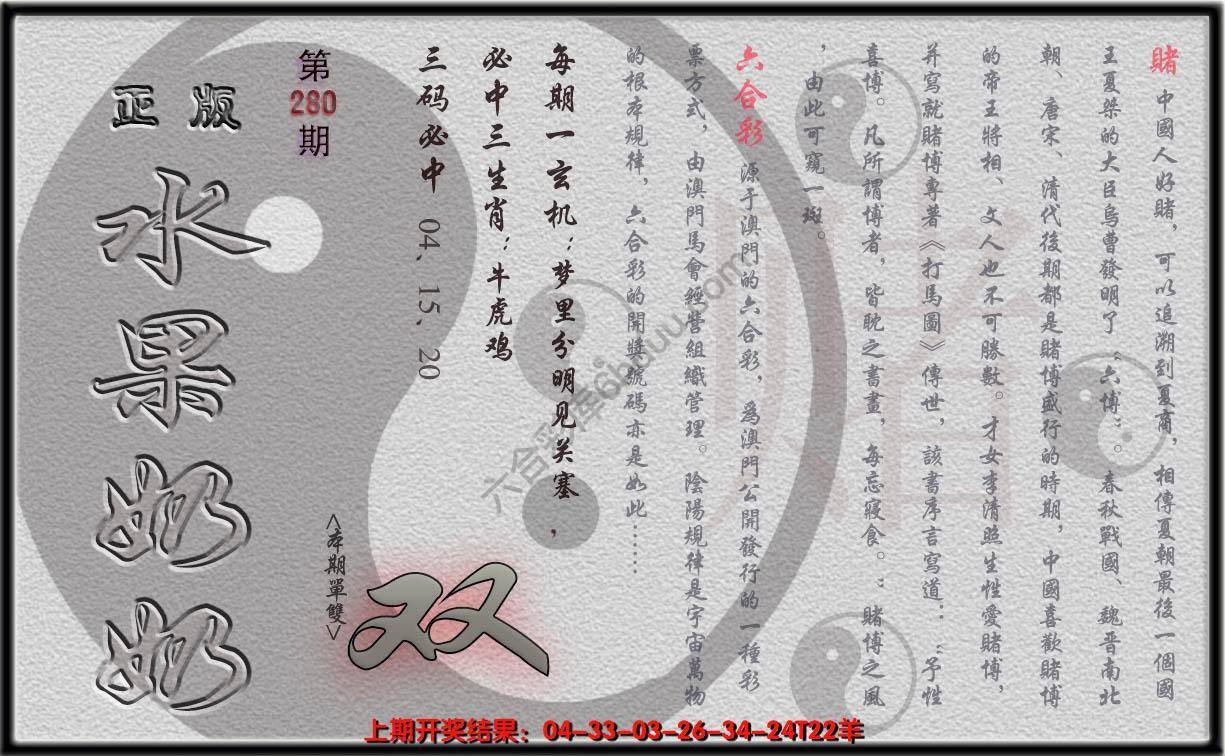 賭 中國人好賭，可以追溯到夏商，相傳夏朝最後一個國
王夏桀的大臣烏曹發明了“六博”。春秋戰國、魏晋南北
朝、唐宋、清代後期都是賭博盛行的時期，中國喜歡賭博
的帝王將相、文人也不可勝數。才女李清照生性愛賭博，
并寫就賭博專著《打馬圖》傳世，該書序言寫道：“予性
喜博。凡所謂博者，皆耽之書畫，每忘寢食。”賭博之風
，由此可窺一斑。
六合彩 源于澳門的六合彩，爲澳門公開發行的一種彩
票方式，由澳門馬會經營組織管理。陰陽規律是宇宙萬物
的根本規律，六合彩的開獎號碼亦是如此……
每期一玄机：梦里分明见关塞，
必中三生肖：牛虎鸡
三码必中 04、15、20
第
280
期
正版
水果奶奶
<本期單雙>
双
六合彩库6huuu.com
上期开奖结果：04-33-03-26-34-24T22羊